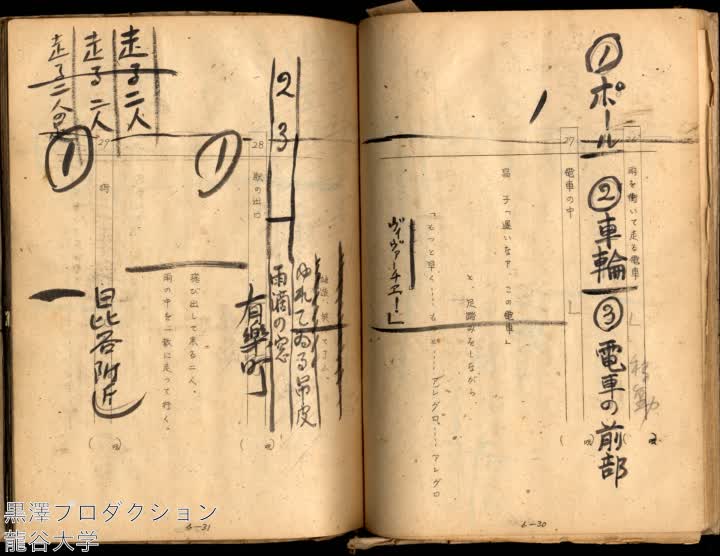 ①ポール ②車輪 ③電車の前部
26
雨を衝いて走る電車
移動
27
電車の中
昌子「遅いなア、この電車」
と、足踏みをしながら
「もっと早く……も
アレグロ……アレグロ
ヴィヴァーチェ!」
6—30
ゆれてゐる吊皮
雨滴の窓
2
3
28
駅の出口
有樂町
①
飛び出して来る二人。
雨の中を一散に走って行く。
29
街
日比谷附近
①
走る二人
走る二人
走る二人の足
6—31
黒澤プロダクション
龍谷大学